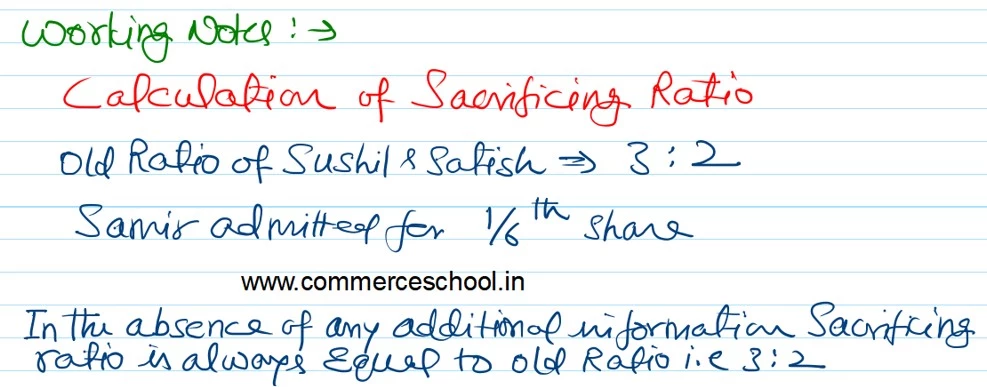 Working Notes : →
Calculation of Sacrificing Ratio
Old Ratio of Sushil & Satish ⇒ 3 : 2
Samir admitted for 1/6th share
www.commerceschool.in
In the absence of any additional information Sacrificing
ratio is always Equal to old Ratio i.e 3 : 2